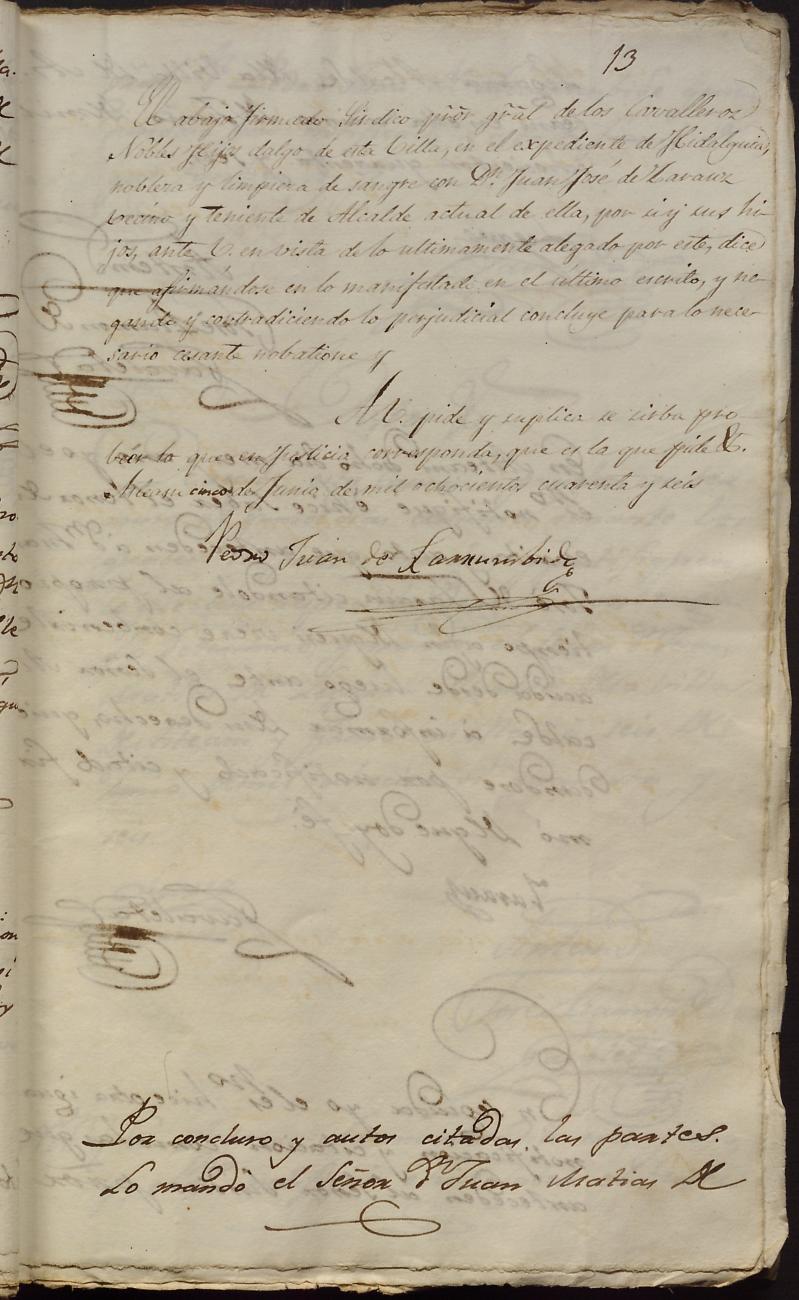 13
El abajo firmado Sindico prõr gr̃al de los Cavalleros
Nobles Hijos dalgo de esta Villa, en el expediente de Hidalguia,
nobleza y limpieza de sangre con Dn. Juan José de Zarauz
vecino y teniente de Alcalde actual de ella, por si y sus hi-
jos, ante V. en vista de lo ultimamente alegado por este, dice
que afirmándose en lo manifestado en el ultimo escrito, y ne-
gando y contradiciendo lo perjudicial concluye para lo nece-
sario cesante nobatione y
A V. pide y suplica se sirba pro-
béer lo que en Justicia corresponda, que es la que pide &.
cinco de Junio de mil ochocientos cuarenta y seis
Pedro Juan de
Por concluso y autos citadas las partes.
Lo mandó el Señor Dn Juan Matias de